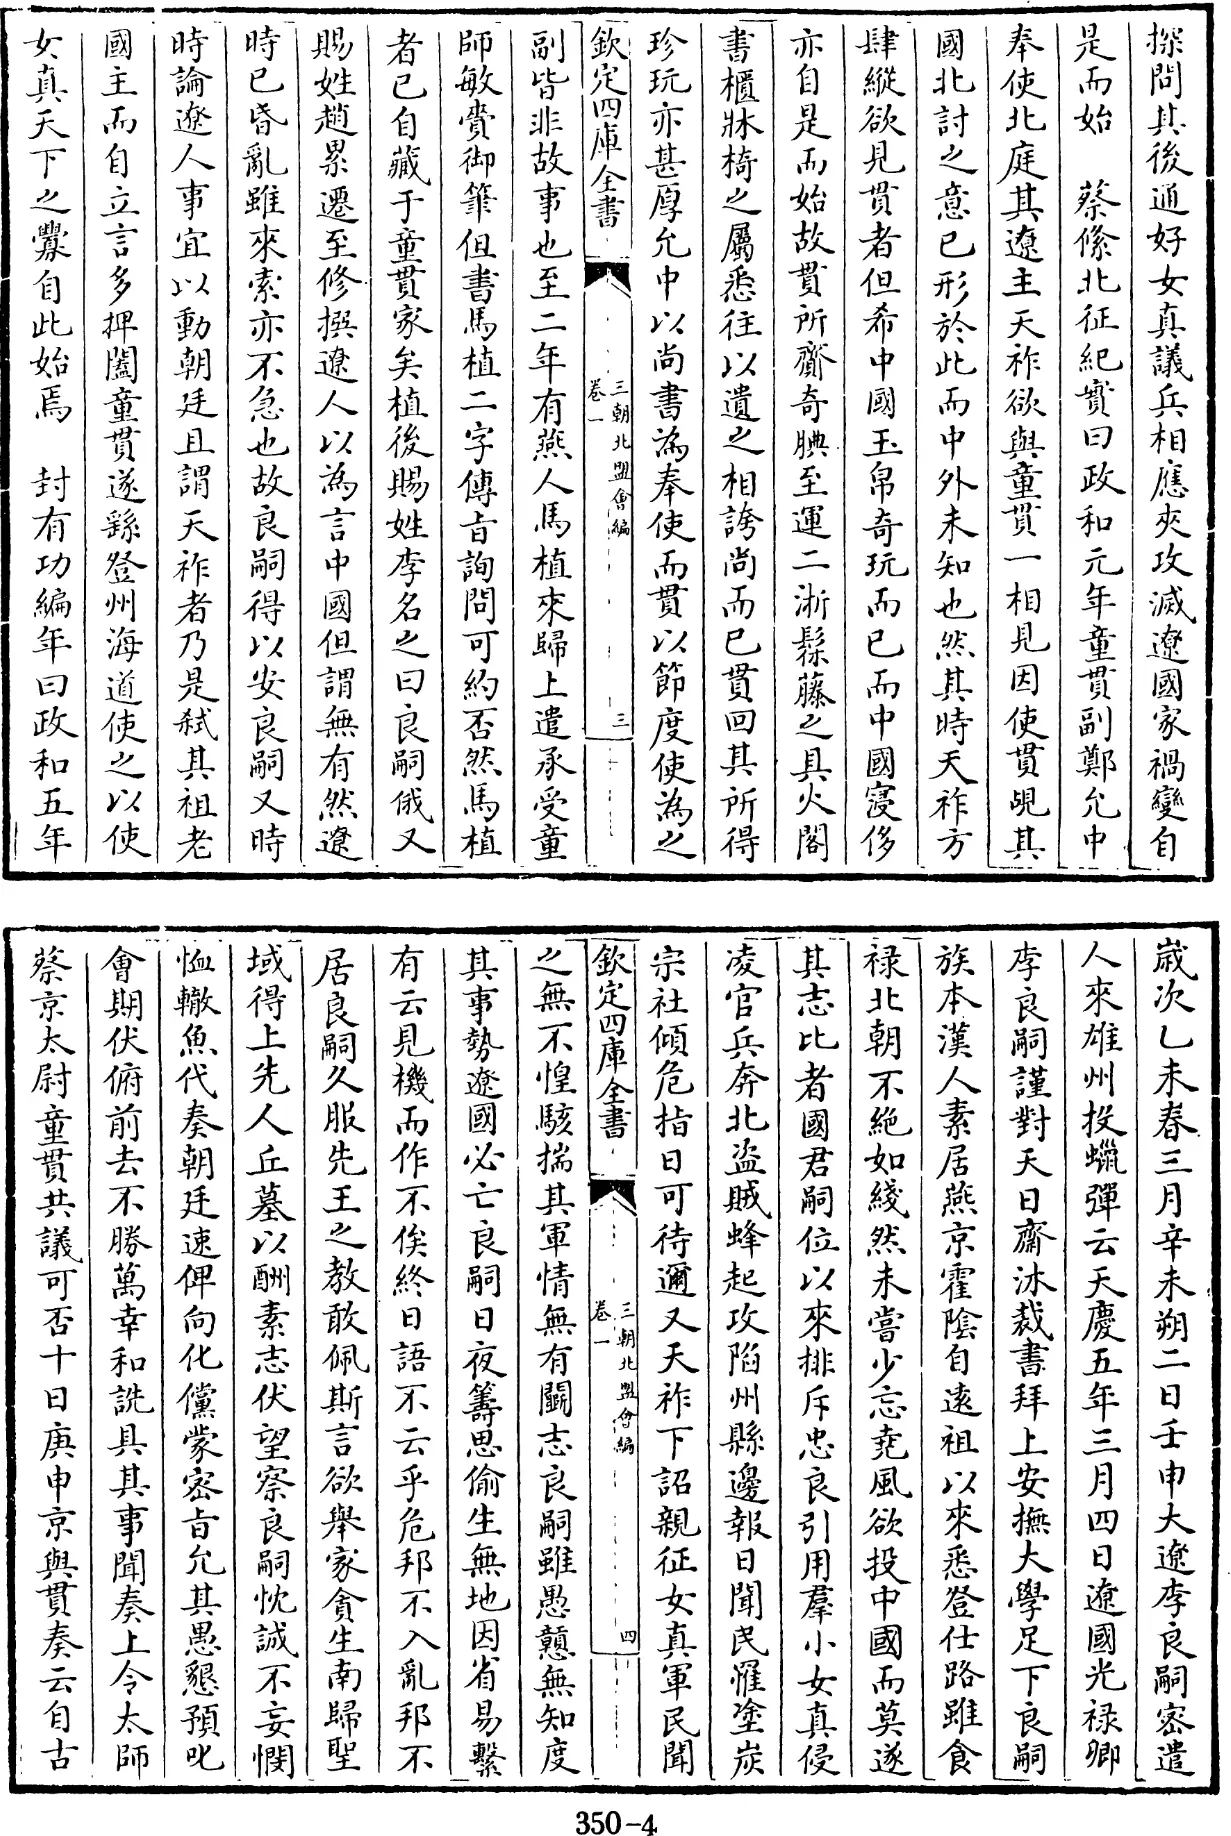 探問其後通好女真議兵相應夾攻滅遼國家禍變自
是而始　蔡絛北征紀實曰政和元年童貫副鄭允中
奉使北庭其遼主天祚欲與童貫一相見因使貫覘其
國北討之意已形於此而中外未知也然其時天祚方
肆縱欲見貫者但希中國玉帛奇玩而已而中國寖侈
亦自是而始故貫所齎奇腆至運二浙髹藤之具火閣
書櫃牀椅之屬悉往以遺之相誇尚而已貫回其所得
珍玩亦甚厚允中以尚書為奉使而貫以節度使為之
欽定四庫全書　三朝北盟會編
卷一　三
副皆非故事也至二年有燕人馬植來歸上遣承受童
師敏賫御筆但書馬植二字傳旨詢問可約否然馬植
者已自藏于童貫家矣植後賜姓李名之曰良嗣俄又
賜姓趙累遷至修撰遼人以為言中國但謂無有然遼
時已昏亂雖來索亦不急也故良嗣得以安良嗣又時
時論遼人事宜以動朝廷且謂天祚者乃是弒其祖老
國主而自立言多捭闔童貫遂繇登州海道使之以使
女真天下之釁自此始焉　封有功編年曰政和五年
歲次乙未春三月辛未朔二日壬申大遼李良嗣密遣
人來雄州投蠟彈云天慶五年三月四日遼國光祿卿
李良嗣謹對天日齋沐裁書拜上安撫大學足下良嗣
族本漢人素居燕京霍陰自遠祖以來悉登仕路雖食
祿北朝不絶如綫然未嘗少忘堯風欲投中國而莫遂
其志比者國君嗣位以來排斥忠良引用羣小女真侵
凌官兵奔北盜賊蜂起攻陷州縣邊報日聞民罹塗炭
宗社傾危指日可待邇又天祚下詔親征女真軍民聞
欽定四庫全書　三朝北盟會編
卷一　四
之無不惶駭揣其軍情無有鬬志良嗣雖愚戇無知度
其事勢遼國必亡良嗣日夜籌思偷生無地因省易繫
有云見機而作不俟終日語不云乎危邦不入亂邦不
居良嗣久服先王之教敢佩斯言欲舉家貪生南歸聖
域得上先人丘墓以酬素志伏望察良嗣忱誠不妄憫
恤轍魚代奏朝廷速俾向化儻蒙密旨允其愚懇預叱
會期伏俯前去不勝萬幸和詵具其事聞奏上令太師
蔡京太尉童貫共議可否十日庚申京與貫奏云自古
350-4